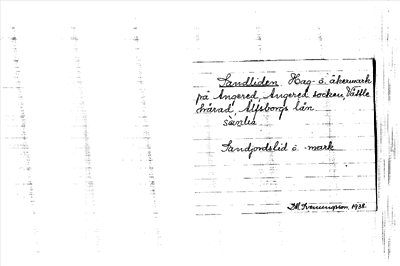 Sandliden Hag- o. åkermark
på Angered, Angered socken, Vättle
härad, Älfsborgs län.
sànlia
Sandjordslid o. mark
1938.